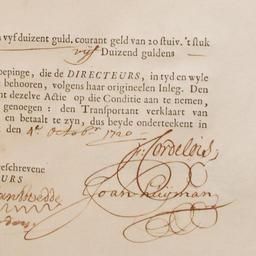 vyf duizent guld. courant geld van 20 stuiv. 't stuk
vyf Duizend guldens
epinge, die de DIRECTEURS, in tyd en wyle
behooren, volgens haar origineelen Inleg. Den
nt dezelve Actie op die Conditie aan te nemen,
genoegen: den Transportant verklaart van
en betaalt te zyn, dus beyde onderteekent in
den 4e Octobr 1720
eschrevene
URS
Cordelois
Joan huijsman